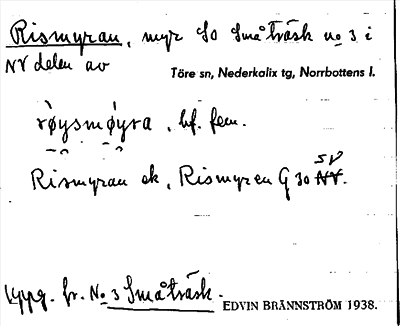 Rismyran, myr SO Småträsk no 3 i
NV delen av
Töre sn, Nederkalix tg, Norrbottens l.
ròysmǿyra, bf. fem.
Rismyran ek, Rismyren G 30 SV
Uppg. fr. No 3 Småträsk.
EDVIN BRÄNNSTRÖM 1938.